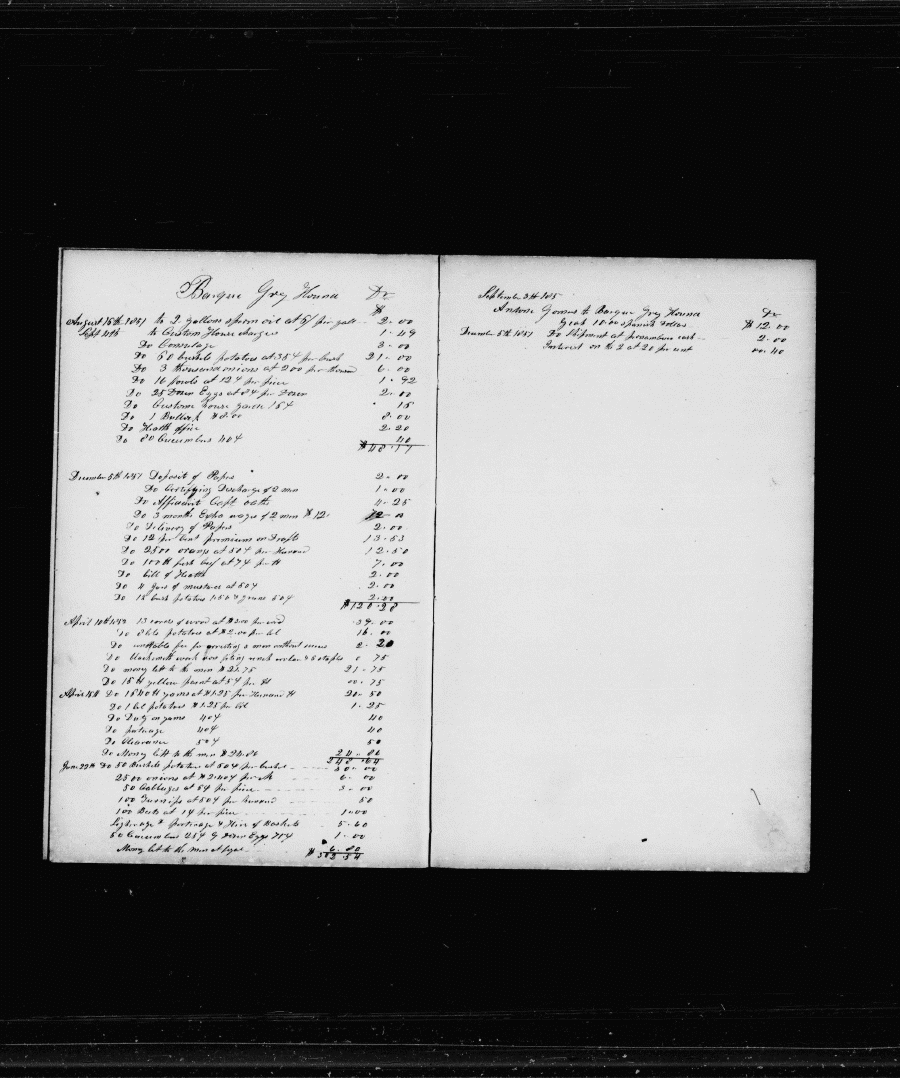 Barque Grey Hound Dr
$
August 15th 1851 to 2 gallons sperm oil at 8/ per gall 2.00
Sept 4th to Custom House charges 1.49
Do Consulage 3.00
Do 60 bushels potatoes at 35¢ per bush 21.00
Do 3 thousand onions at 200 per thousand 6.00
Do 16 fowls at 12¢ per piece 1.92
Do 25 Dozen Eggs at 8¢ per Dozen 2.00
Do Custom house 15¢ 15
Do 1 Bullock $8.00 8.00
Do Health office 2.20
Do 80 Cucumbers 40¢ 40
$48.17
December 8th 1851 Deposit of Papers 2.00
Do Certifying Discharge of 2 men 1.00
Do Affidavit Capt oath 4.25
Do 3 months Extra wages of 2 men $12. 12.00
Do Delivery of Papers 2.00
Do 12 per Cent premium on Drafts 13.53
Do 2500 orangs at 50¢ per Hundred 12.50
Do 100 lb fresh beef at 7¢ per lb 7.00
Do bill of Health 2.00
Do 4 Jars of mustard at 50¢ 2.00
Do 12 bush potatoes 1.50 50¢ 2.00
$120.28
April 10th 1852 13 cords of wood at $3.00 per cord 39.00
Do 8 bls potatoes at $2.00 per bl 16.00
Do fee for a man without 2.20
Do blacksmith work one collar & 5 staples 0.75
Do money lett to the men $21.75 21.75
Do 15 lb yellow paint at 5¢ per lb 00.75
April 15th Do 1540 lb yams at $1.25 per Hundred lb 20.50
Do 1 bl potatoes $1.25 per bl 1.25
Do Duty on yams 40¢ 40
Do patrage 40¢ 40
Do Clearance 50¢ 50
Do Money lett to the men $24.86 24.86
248.64
June 22th Do 50 Bushels potatoes at 50¢ per bushel 30.00
2500 onions at $2.40¢ per M 6.00
50 Cabbages at 5¢ per piece 3.00
100 Turnips at 50¢ per hundred 50
100 Beets at 1¢ per piece 1.00
Lighterage & Porterage & Hire of Baskets 5.60
50 Cucumbers 25¢ 9 Dozen Eggs 75¢ 1.00
Money let to the men at 6.80
$302.54
September 3th 185
Antone Gomes to Barque Grey Hound Dr
Cash 12.00 Spanish Dollars $12.00
December 8th 1851 Do Shipment at pernambuco cash 2.00
Interest on the 2 at 20 per cent 00.40